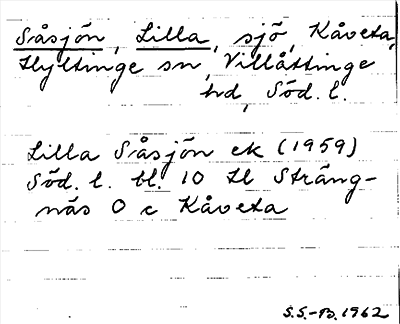 Såsjön, Lilla, sjö, Kåveta,
Hyltinge sn, Villåttinge
hd, Söd. l.
Lilla Såsjön ek (1959)
Söd. l. bl. 10 H Sträng-
näs O c Kåveta
S.S.-B. 1962